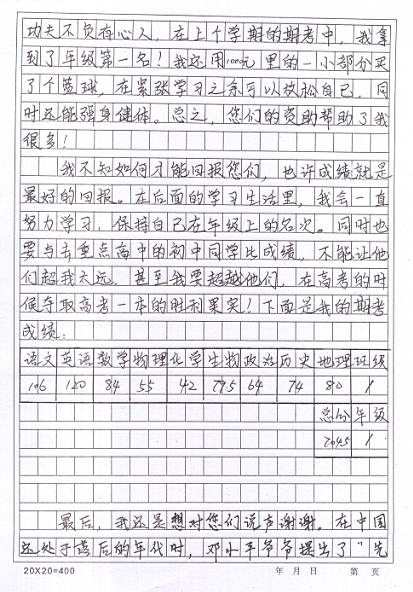 功夫不负有心人,在上个学期的期考中,我拿
到了年级第一名!我还用1000元里的一小部分买
了个篮球,在紧张学习之余可以放松自己,同
时还能强身健体。总之,您们的资助帮助了我
很多!
我不知如何才能回报您们,也许成绩就是
最好的回报。在后面的学习生活里,我会一直
努力学习,保持自己在年级上的名次。同时也
要与去重点高中的初中同学比成绩,不能让他
们超我太远,甚至我要超越他们,在高考的时
候夺取高考一本的胜利果实!下面是我的期考
成绩:
语文 英语 数学 物理 化学 生物 政治 历史 地理 班级
106 120 84 55 42 79.5 64 74 80 1
总分 年级
704.5 1
最后,我还是想对您们说声谢谢。在中国
还处于落后的年代时,邓小平爷爷提出了“先
20X20=400 年 月 日 第 页